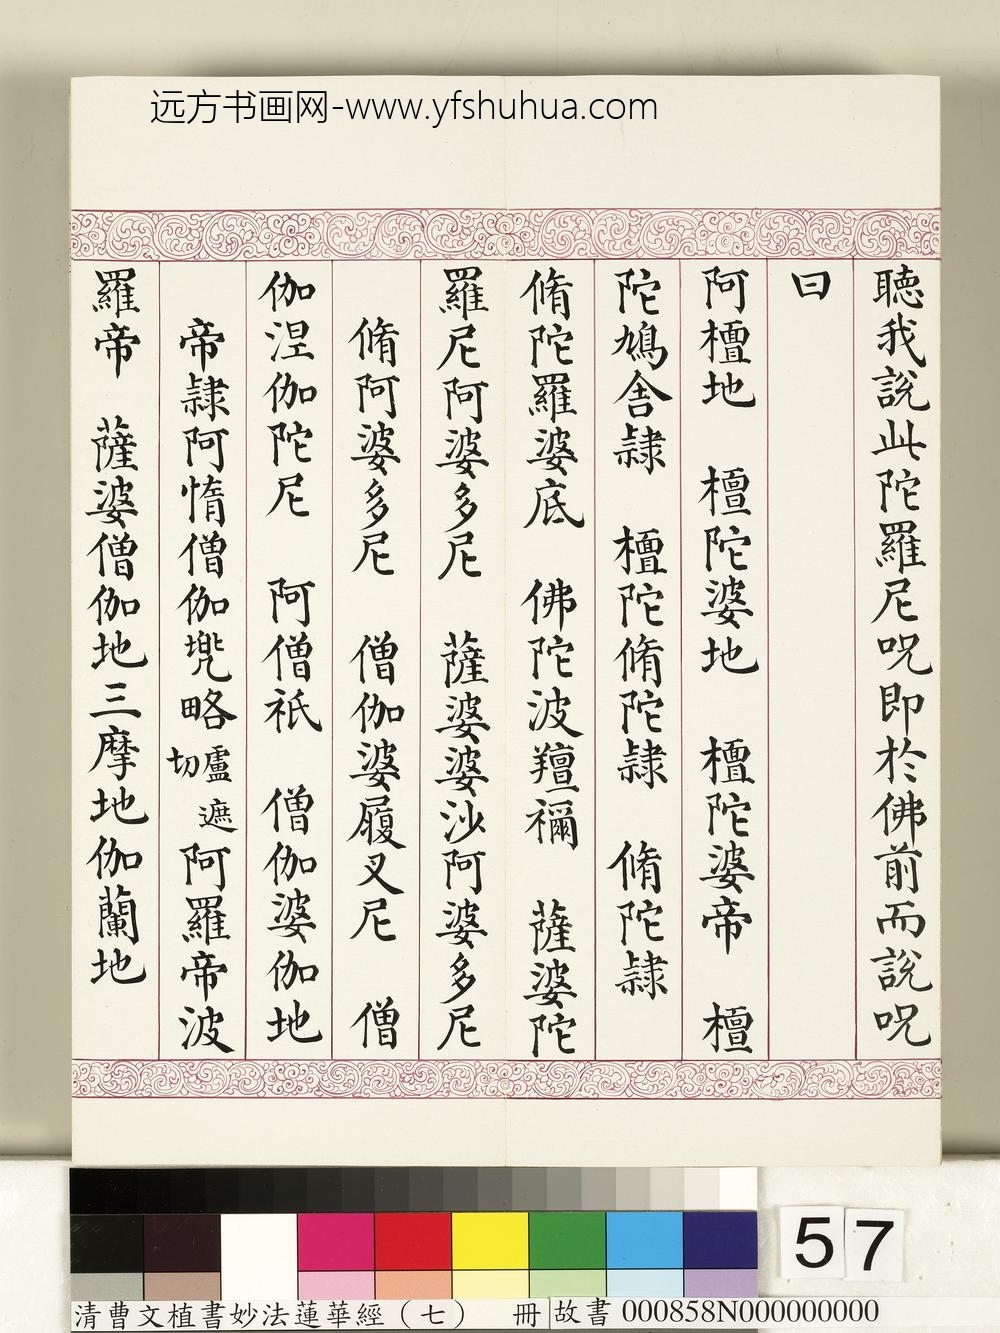 远方书画网-www.yfshuhua.com
聽我說此陀羅尼呪即於佛前而說呪
曰
阿檀地　檀陀婆地　檀陀婆帝　檀
陀鳩舍隸　檀陀脩陀隸　脩陀隸
脩陀羅婆底　佛陀波羶禰　薩婆陀
羅尼阿婆多尼　薩婆婆沙阿婆多尼
脩阿婆多尼　僧伽婆履叉尼　僧
伽涅伽陀尼　阿僧祇　僧伽婆伽地
帝隸阿惰僧伽兠略盧遮切阿羅帝波
羅帝　薩婆僧伽地三摩地伽蘭地
57
清曹文植書妙法蓮華經（七）　冊
故書 000858N000000000